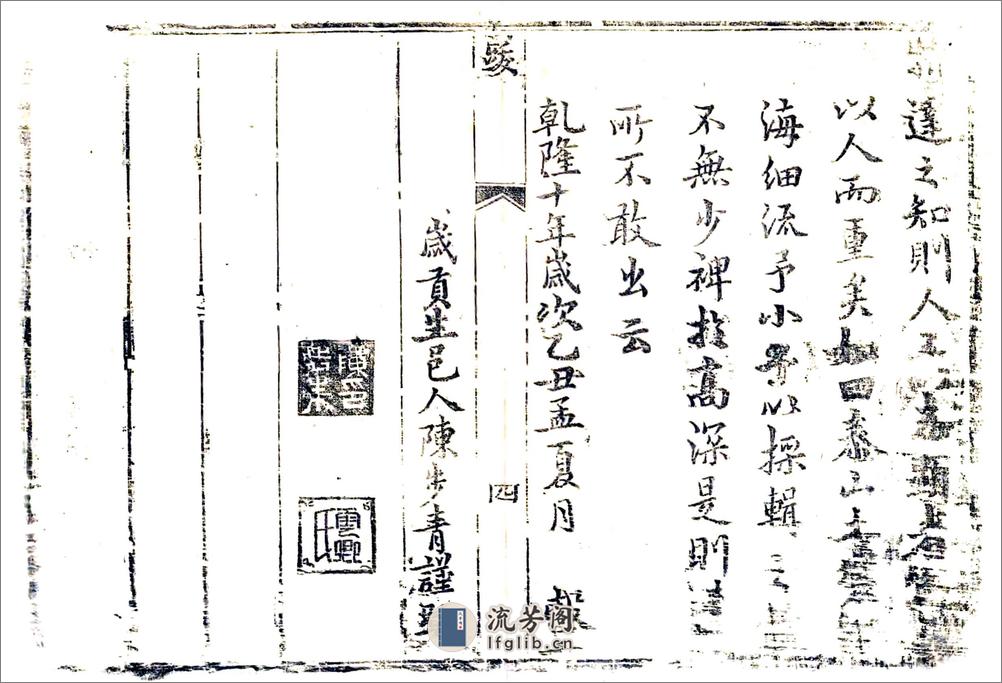 達之知則人
以人而重矣如曰泰山土
海細流予小子以採輯之
不無少裨於高深是則
所不敢出云
乾隆十年歲次乙丑孟夏月
跋
四
歲貢生邑人陳步青謹
雲卿氏
流芳阁
lfglib.cn